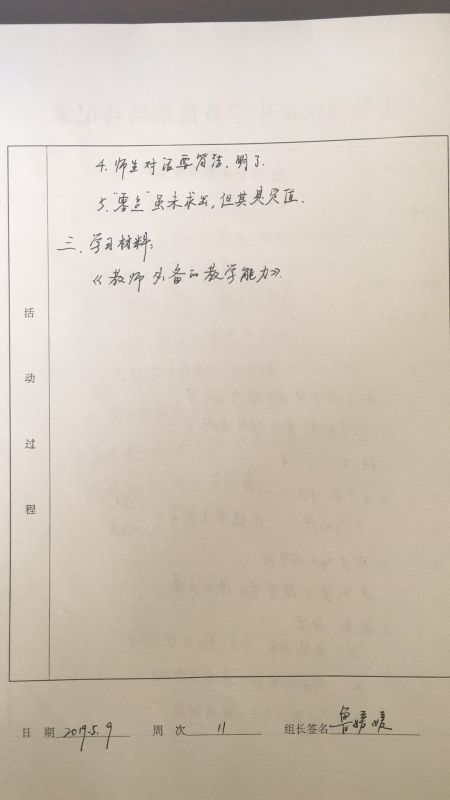 4. 师生对话要简洁. 明了.
5. "零点"虽未求出, 但其是定值.
三. 学习材料:
《教师必备的教学能力》.
活
动
过
程
日 期 2019.5.9 周 次 11 组长签名 鲁媛媛